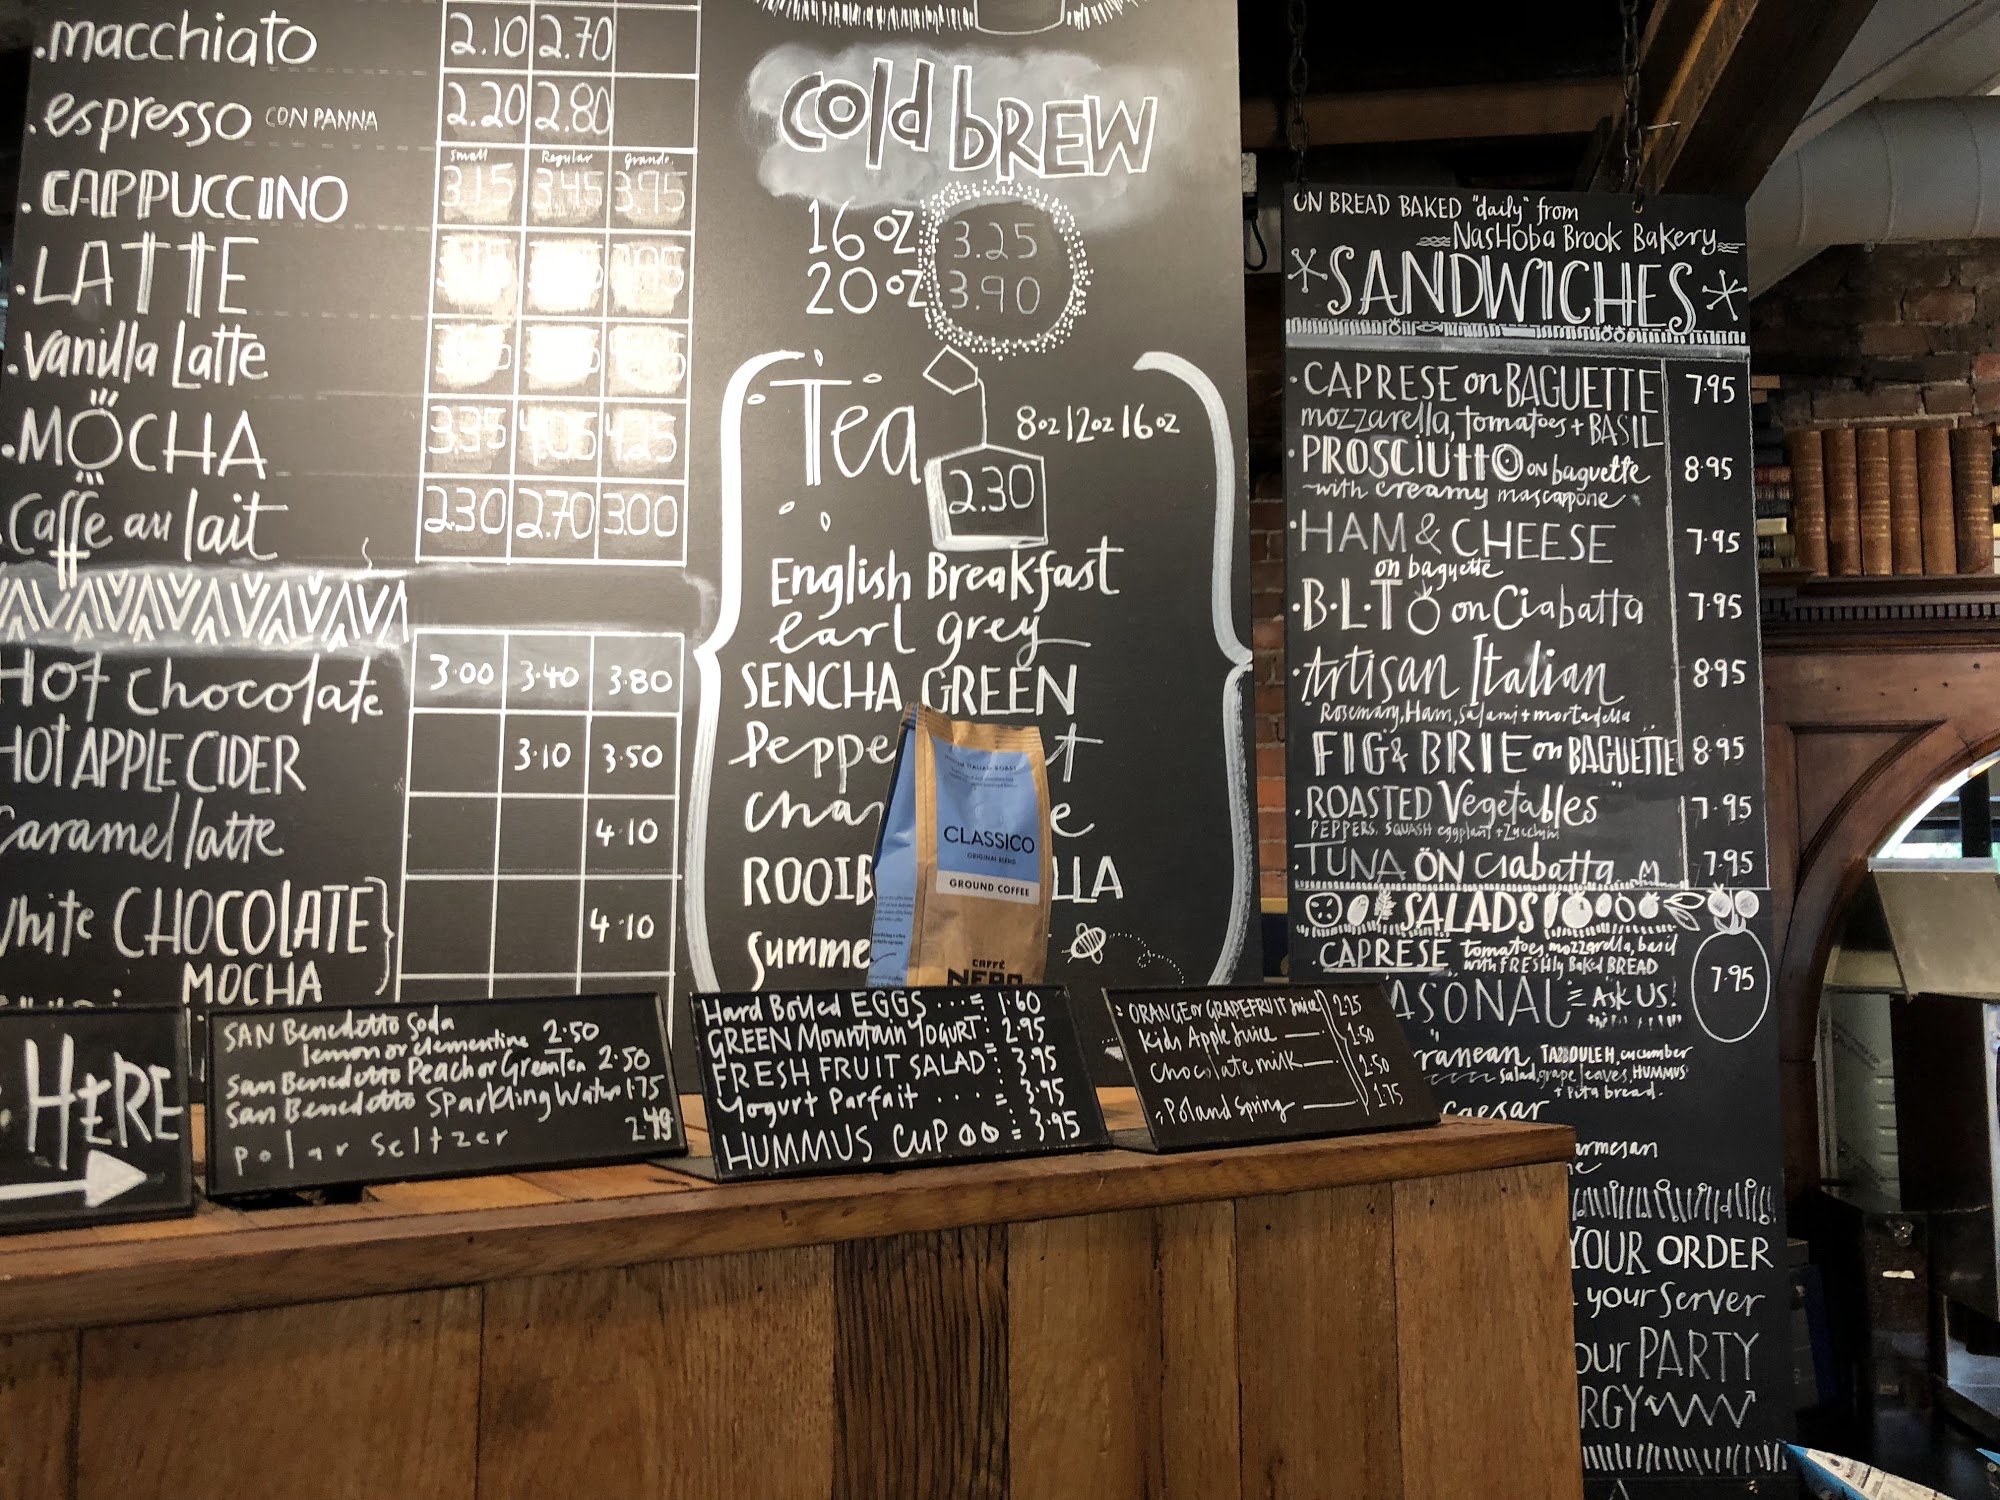 macchiato 2.10 2.70
espresso CON PANNA 2.20 2.80
Small Regular Grande
CAPPUCCINO 3.15 3.45 3.95
LATTE
vanilla Latte
MOCHA 3.35 4.05 4.25
Caffe au lait 2.30 2.70 3.00
Hot Chocolate 3.00 3.40 3.80
HOT APPLE CIDER 3.10 3.50
Caramel latte 4.10
White CHOCOLATE 4.10
MOCHA
cold bREW
16 oz 3.25
20 oz 3.90
Tea 8oz 12oz 16oz
2.30
English Breakfast
earl grey
SENCHA GREEN
CLASSICO
ORIGINAL BLEND
GROUND COFFEE
CAFFÈ
NERO
ON BREAD BAKED "daily" from
NasHoba Brook Bakery
SANDWICHES
CAPRESE on BAGUETTE 7.95
mozzarella, tomatoes + BASIL
PROSCIUTTO on baguette 8.95
with creamy mascarpone
HAM & CHEESE 7.95
on baguette
B.L.T on Ciabatta 7.95
Artisan Italian 8.95
Rosemary Ham, Salami + mortadella
FIG & BRIE on BAGUETTE 8.95
ROASTED Vegetables 7.95
PEPPERS, SQUASH eggplant + Zucchini
TUNA ÖN Ciabatta 7.95
SALADS
CAPRESE tomatoes, mozzarella, basil
with FRESHly BaKed BREAD
7.95
ASONAL Ask US!
rranean, TABBOULEH, cucumber
salad, grape leaves, HUMMUS
+ Pita bread.
caesar
armesan
YOUR ORDER
your Server
our PARTY
RGY
HERE
SAN Benedetto Soda
lemon or clementine 2.50
San Benedetto Peach or Green Tea 2.50
San Benedetto Sparkling Water 1.75
polar seltzer 2.49
Hard Boiled EGGS . . . = 1.60
GREEN Mountain YoGURT: 2.95
FRESH FRUIT SALAD: 3.95
Yogurt Parfait . . . . = 3.95
HUMMUS CUP : 3.95
ORANGE or GRAPEFRUIT juice 2.25
Kids Apple Juice 1.50
Chocolate milk 2.50
Poland Spring 1.75